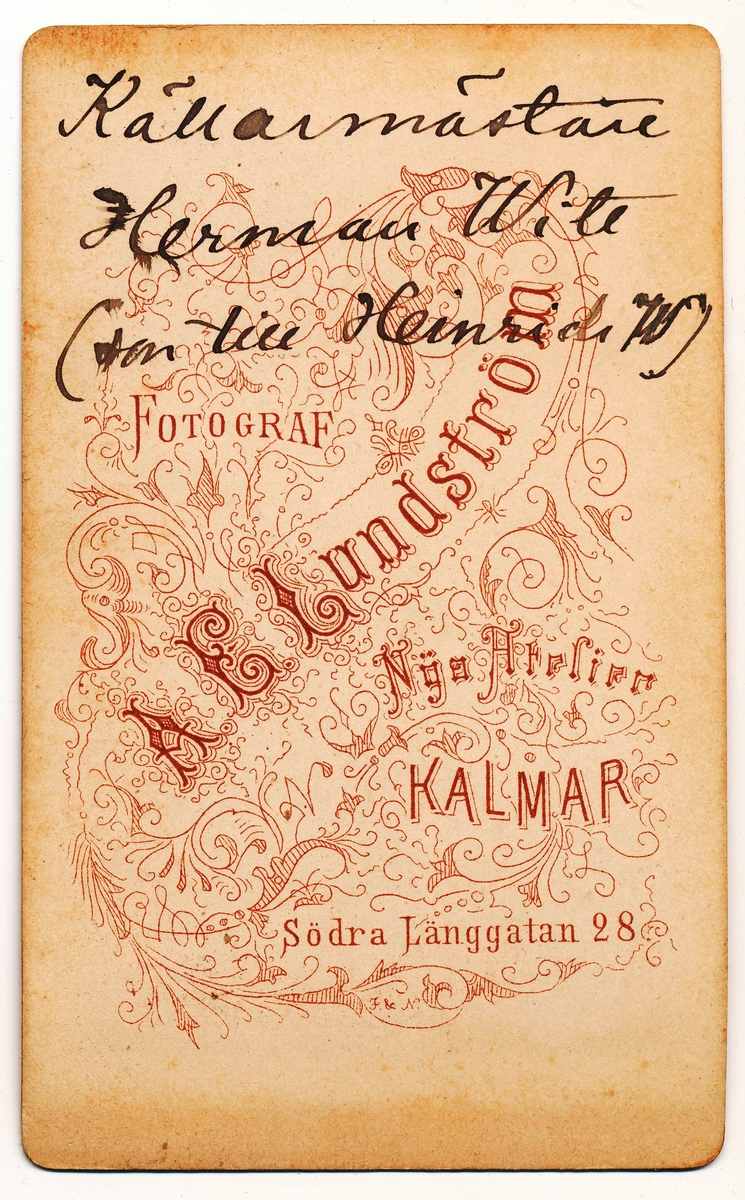 Källarmästare
Herman Wite
(son till Heinrich W)
FOTOGRAF
A. E. Lundström
Nya Atelier
KALMAR
Södra Långgatan 28
F. & N.